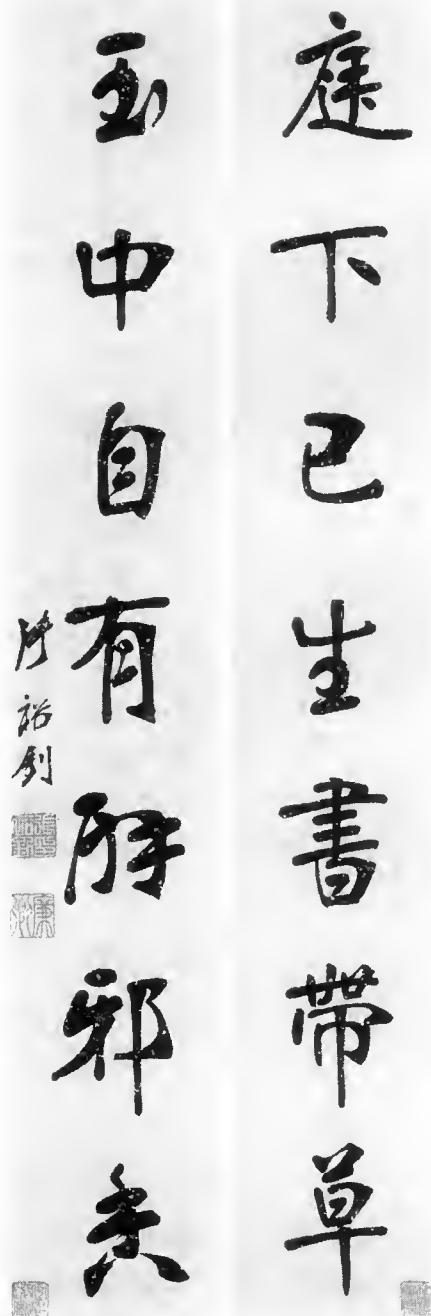 庭下已生書帶草
玉中自有辟邪香
張裕釗